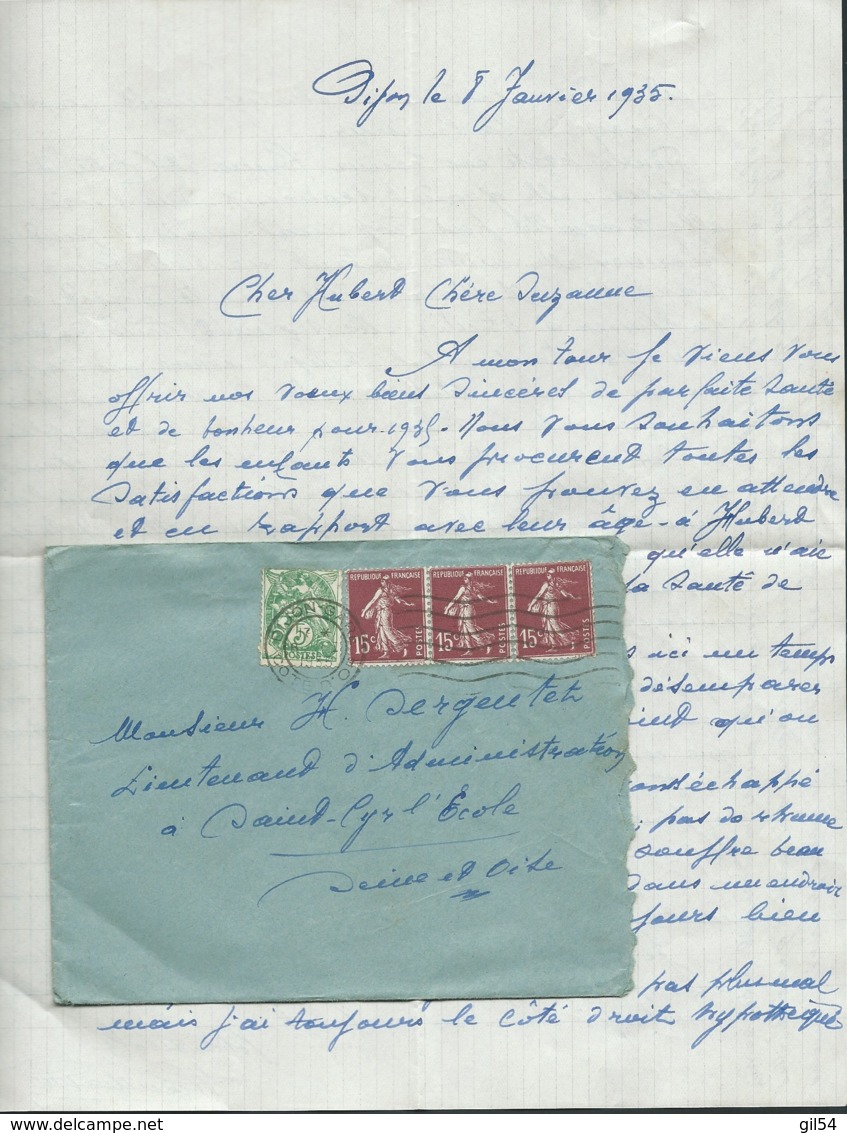 Dijon le 8 Janvier 1935.
Cher Hubert Chère Suzanne
A mon tour je viens vous
offrir nos voeux biens sincères de parfaite santé
et de bonheur pour 1935. Nous vous souhaitons
que les enfants vous procurent toutes les
satisfactions que vous pouvez en attendre
et en rapport avec leur âge - à Hubert
qu'elle n'ai
la santé de
ici un temps
désemparer
qu'on
échappé
pas de rhume
souffre beau
dans un endroit
jours bien
pas plus mal
mais j'ai toujours le côté droit hypothéqué
REPUBLIQUE FRANÇAISE
15c
POSTES
REPUBLIQUE FRANÇAISE
15c
POSTES
REPUBLIQUE FRANÇAISE
15c
POSTES
5c
POSTES
DIJON GARE
Monsieur H. Sergentet
Lieutenant d'Administration
à Saint-Cyr l'École
Seine et Oise
www.delcampe.net
gil54